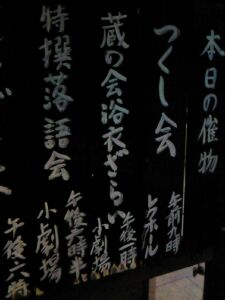 本日の催物
つくし会
午前九時
レクホール
蔵の会浴衣ざらい
午後一時
小劇場
特撰落語会
午後一時半
小劇場
午後六時